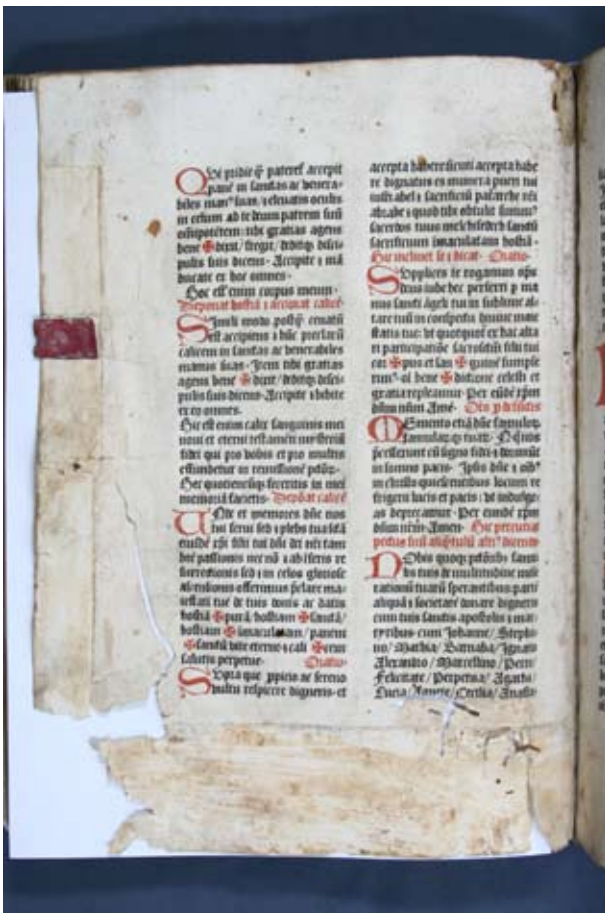 Qui pridie q̄ pateret̄ accepit
panē in sanctas ac venera-
biles man᷒ suas/ ⁊ eleuatis oculis
in celum ad te deum patrem suū
om̄ipotētem: tibi gratias agens
bene ✠ dixit/ fregit/ deditqꝫ disci-
pulis suis dicens· Accipite ⁊ mā
ducate ex hoc omnes·
Hoc est enim corpus meum·
Deponat hostiā ⁊ accipiat calicē·
Simili modo postꝙ cenatū
est accipiens ⁊ hūc preclarū
calicem in sanctas ac venerabiles
manus suas· Item tibi gratias
agens bene ✠ dixit/ deditqꝫ disci-
pulis suis dicens· Accipite ⁊ bibite
ex eo omnes·
Hic est enim calix sanguinis mei
noui et eterni testamēti misteriū
fidei qui pro vobis et pro multis
effundetur in remissionē pctōꝝ·
Hec quotienscūqꝫ feceritis in mei
memoriā facietis· Deponat calicē
Unde et memores dn̄e nos
tui serui sed ⁊ plebs tua sctā
eiusdē xp̄i filii tui dn̄i dei nr̄i tam
bt̄e passionis nec nō ⁊ ab inferis re
surrectionis sed ⁊ in celos gloriose
ascensionis offerimus p̄clare ma-
iestati tue de tuis donis ac datis
hostiā ✠ purā/ hostiam ✠ sanctā/
hostiam ✠ imaculatam/ panem
✠ sanctū vite eterne ⁊ cali ✠ cem
salutis perpetue· Oratio
Supra que ꝓpicio ac sereno
vultu respicere digneris· et
accepta habere sicuti accepta habe
re dignatus es munera pueri tui
iusti abel ⁊ sacrificiū patriarche nr̄i
abrahe ⁊ quod tibi obtulit summ᷒
sacerdos tuus melchisedech sanctū
sacrificium imaculatam hostiā·
Hic inclinet se ⁊ dicat· Oratio
Supplices te rogamus op̄s
deus iube hec perferri ꝑ ma
nus sancti āgeli tui in sublime al-
tare tuū in conspectu diuine maie
statis tue: vt quotquot ex hac alta
ri participatiōe sacrosctm̄ filii tui
cor ✠ pus et san ✠ guinē sumpse
rim᷒· oī bene ✠ dictione celesti et
gratia repleamur· Per eūdē xp̄m
dn̄m nr̄m Amē· Oro ꝓ defūctis
Memento etiā dn̄e famuloꝝ
famularūqꝫ tuaꝝ· N̄· qui nos
precesserunt cū signo fidei ⁊ dormiūt
in somno pacis· Ipsis dn̄e ⁊ oīb᷒
in christo quiescentibus locum re
frigerii lucis et pacis: vt indulge-
as deprecamur· Per eūdē xp̄m
dn̄m nr̄m· Amen·
Nobis quoqꝫ pctōrib᷒ famu
lis tuis de multitudine mise
rationū tuarū sperantibus: parte
aliquā ⁊ societatē donare digneris
cum tuis sanctis apostolis ⁊ mar-
tyribus· cum Johanne/ Stepha-
no/ Mathia/ Barnaba/ Ignatio
Alexandro/ Marcellino/ Petro/
Felicitate/ Perpetua/ Agatha/
Lucia/ Agnete/ Cecilia/ Anasta-